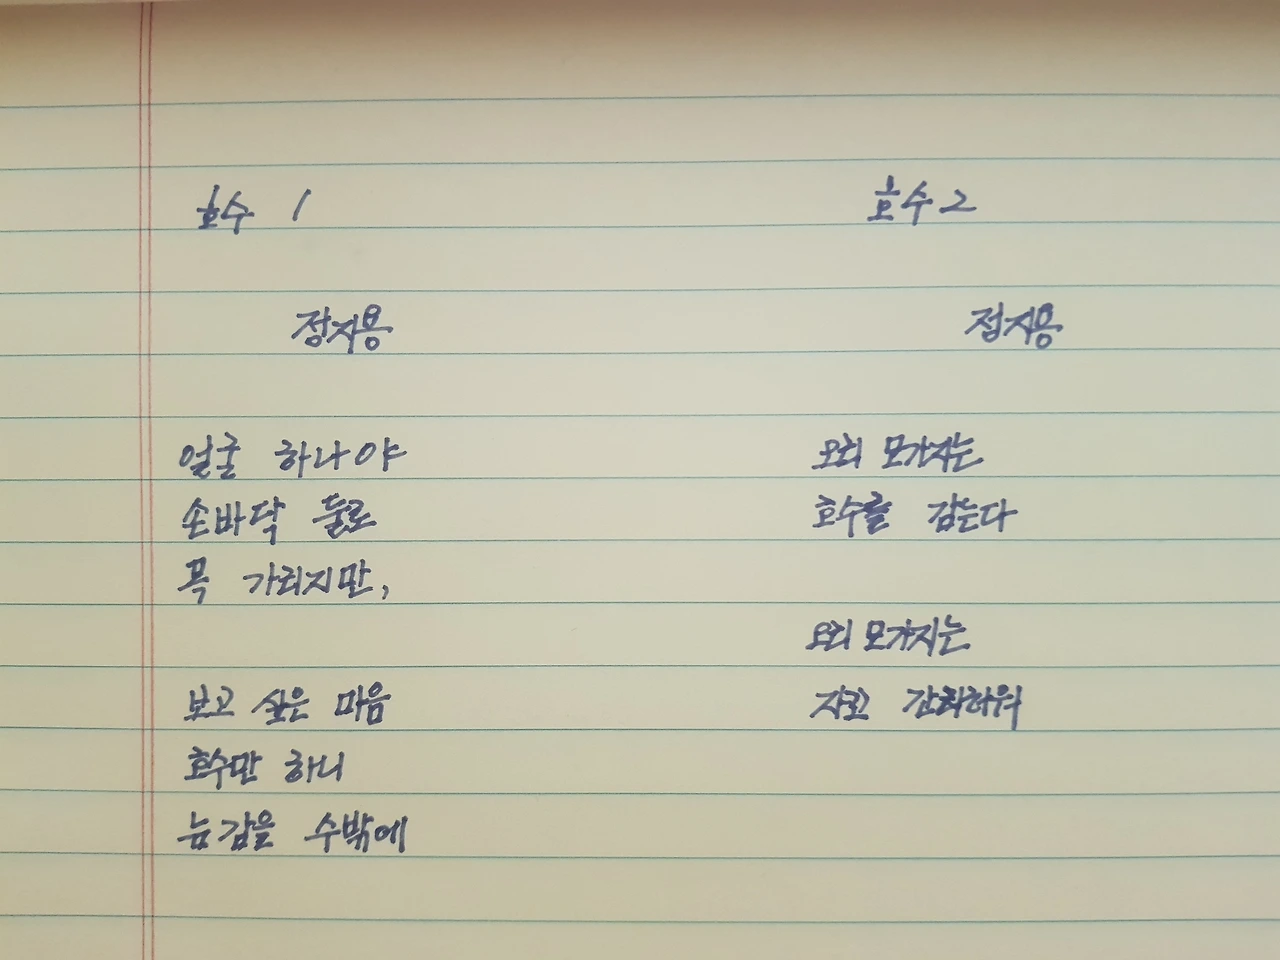 호수 1
정지용
얼굴 하나야
손바닥 둘로
폭 가리지만,
보고 싶은 마음
호수만 하니
눈감을 수밖에
호수 2
정지용
오리 모가지는
호수를 감는다
오리 모가지는
자꼬